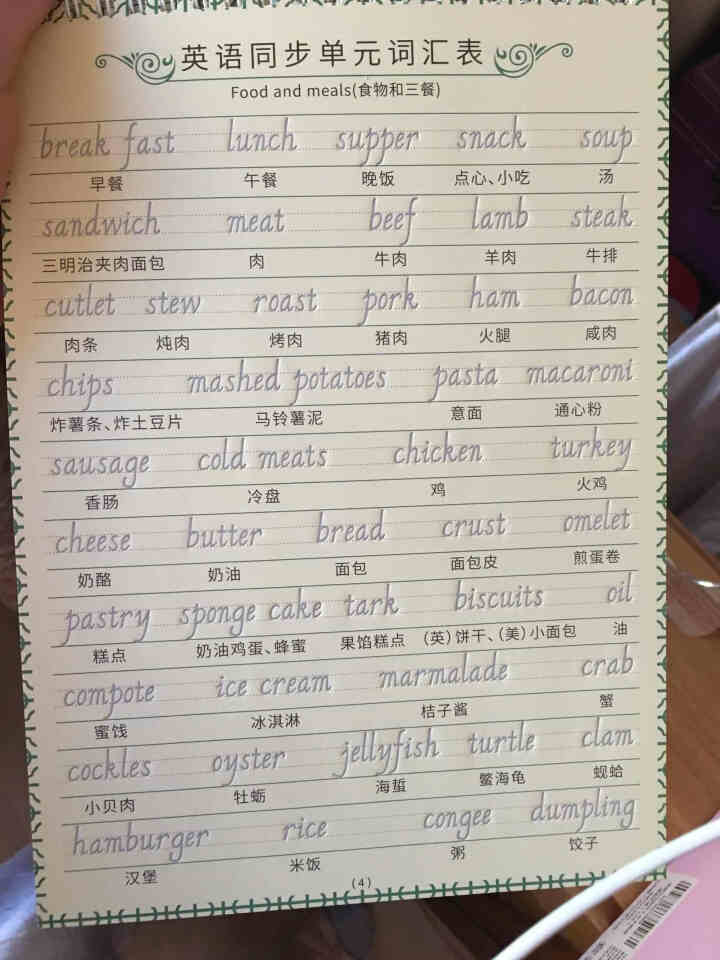 英语同步单元词汇表
Food and meals(食物和三餐)
break fast lunch supper snack soup
早餐 午餐 晚饭 点心、小吃 汤
sandwich meat beef lamb steak
三明治夹肉面包 肉 牛肉 羊肉 牛排
cutlet stew roast pork ham bacon
肉条 炖肉 烤肉 猪肉 火腿 咸肉
chips mashed potatoes pasta macaroni
炸薯条、炸土豆片 马铃薯泥 意面 通心粉
sausage cold meats chicken turkey
香肠 冷盘 鸡 火鸡
cheese butter bread crust omelet
奶酪 奶油 面包 面包皮 煎蛋卷
pastry sponge cake tark biscuits oil
糕点 奶油鸡蛋、蜂蜜 果馅糕点 (英)饼干、(美)小面包 油
compote ice cream marmalade crab
蜜饯 冰淇淋 桔子酱 蟹
cockles oyster jellyfish turtle clam
小贝肉 牡蛎 海蜇 鳖海龟 蚬蛤
hamburger rice congee dumpling
汉堡 米饭 粥 饺子
(4)